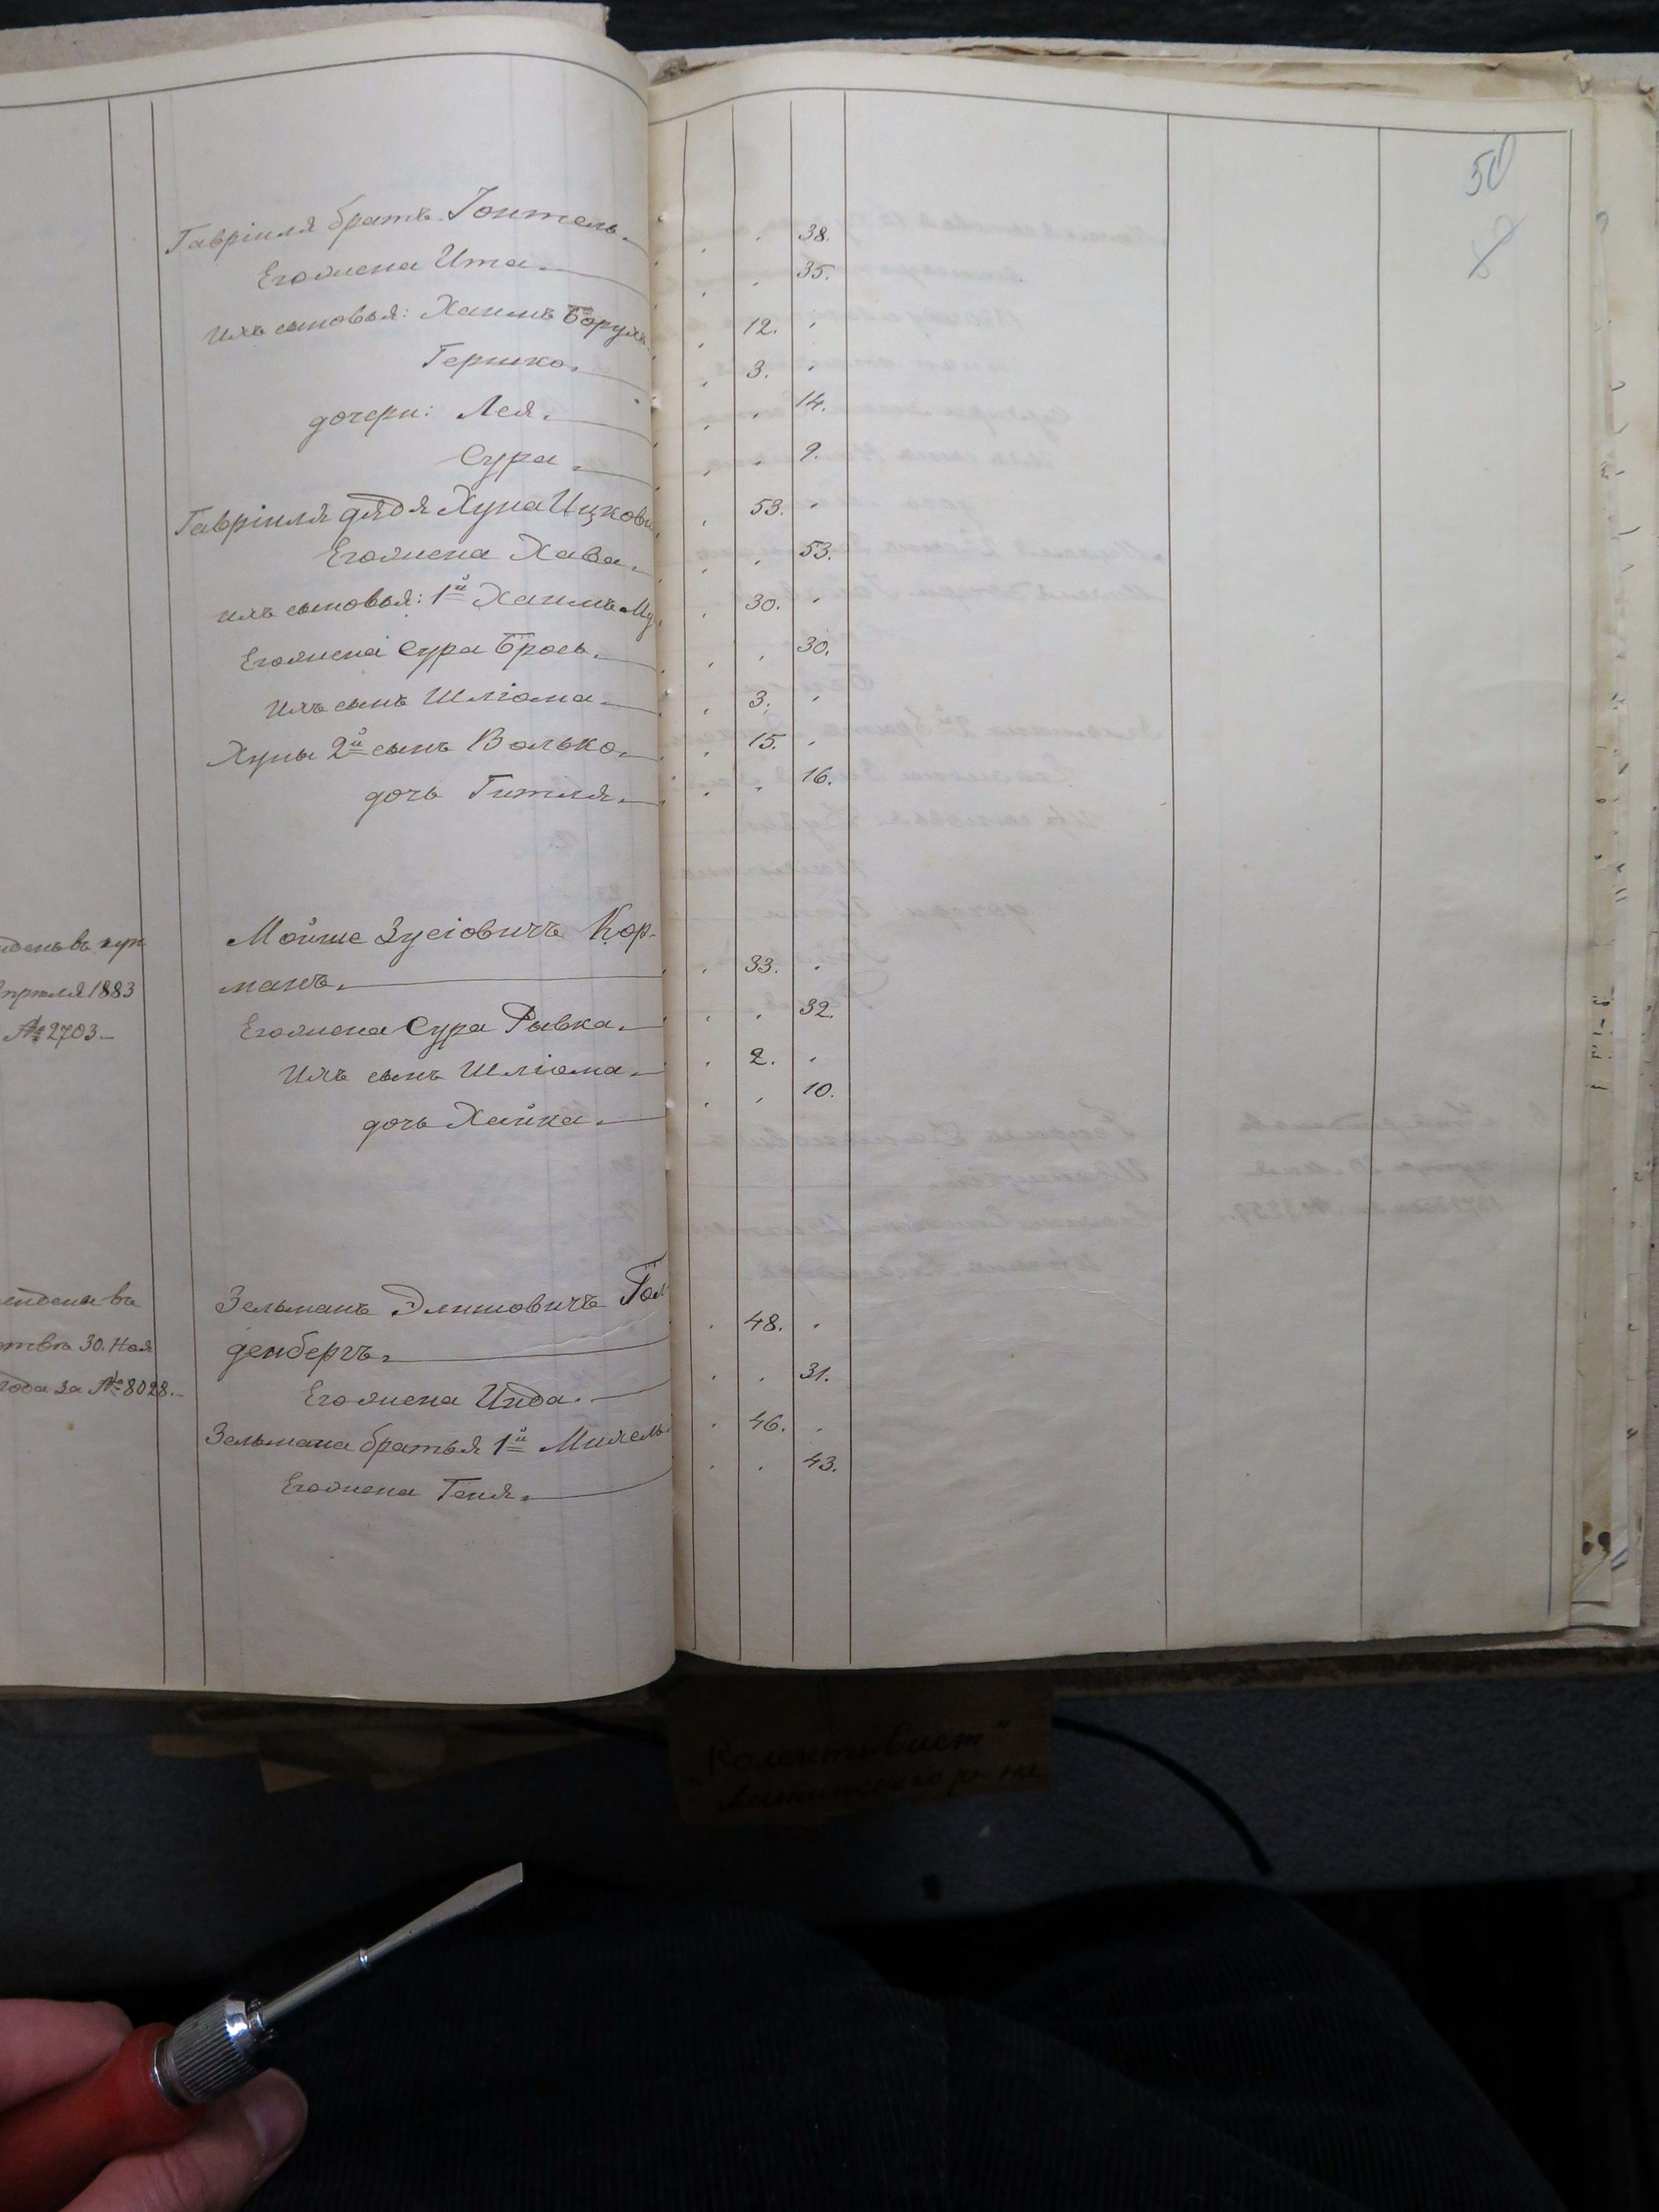 50
Гавріиля братъ Іойтель. 38.
Его жена Ита. 35.
ихъ сыновья: Хаимъ Борухъ 12.
Гершко. 3.
дочери: Лея. 14.
Сура. 9.
Гавріиля дядя Хуна Ицкови 53.
Его жена Хава. 53.
ихъ сыновья: 1й Хаимъ Му 30.
Его жена Сура Брось. 30.
Ихъ сынъ Шліома. 3.
Хуны 2й сынъ Волько. 15.
дочь Гитля. 16.
Мойше Зусіовичъ Кор-
манъ. 33.
Его жена Сура Ривка. 32.
Ихъ сынъ Шліома. 2.
дочь Хайка. 10.
апреля 1883
№ 2703.
Зельманъ Элиовичъ Гол
денбергъ. 48.
Его жена Инда. 31.
Зельмана братья 1й Михель 46.
Его жена Геня. 43.
30. Ноя
года за № 8028.
"Колективист"